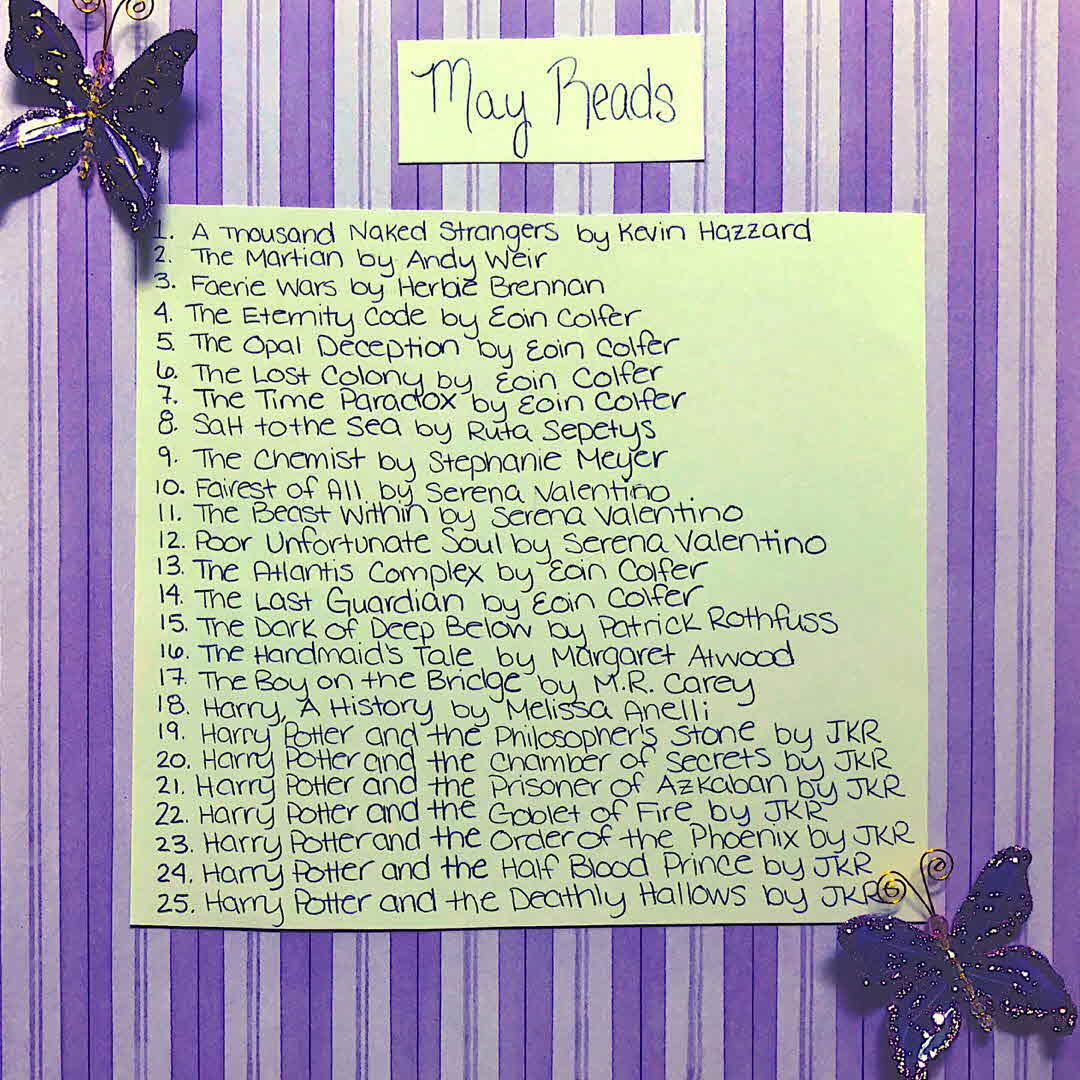 May Reads
1. A Thousand Naked Strangers by Kevin Hazzard
2. The Martian by Andy Weir
3. Faerie Wars by Herbie Brennan
4. The Eternity Code by Eoin Colfer
5. The Opal Deception by Eoin Colfer
6. The Lost Colony by Eoin Colfer
7. The Time Paradox by Eoin Colfer
8. Salt to the Sea by Ruta Sepetys
9. The Chemist by Stephanie Meyer
10. Fairest of All by Serena Valentino
11. The Beast Within by Serena Valentino
12. Poor Unfortunate Soul by Serena Valentino
13. The Atlantis Complex by Eoin Colfer
14. The Last Guardian by Eoin Colfer
15. The Dark of Deep Below by Patrick Rothfuss
16. The Handmaid's Tale by Margaret Atwood
17. The Boy on the Bridge by M.R. Carey
18. Harry, A History by Melissa Anelli
19. Harry Potter and the Philosopher's Stone by JKR
20. Harry Potter and the Chamber of Secrets by JKR
21. Harry Potter and the Prisoner of Azkaban by JKR
22. Harry Potter and the Goblet of Fire by JKR
23. Harry Potter and the Order of the Phoenix by JKR
24. Harry Potter and the Half Blood Prince by JKR
25. Harry Potter and the Deathly Hallows by JKR